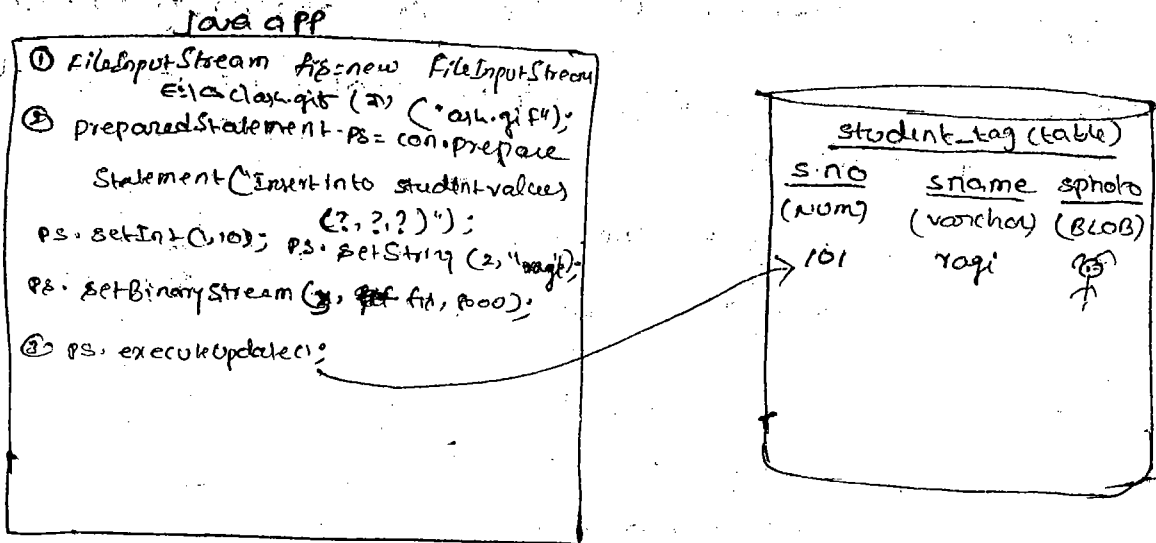 Java app
① FileInputStream fis=new FileInputStream
("ash.gif");
② preparedStatement ps= con.prepare
Statement("Insert into student values
(?,?,?)");
ps.setInt(1,101); ps.setString (2,"
ps. setBinaryStream ( fis, 8000);
③ ps. executeUpdate();
student_tag (table)
s.no sname sphoto
(NUM) (varchar) (BLOB)
101 ragi